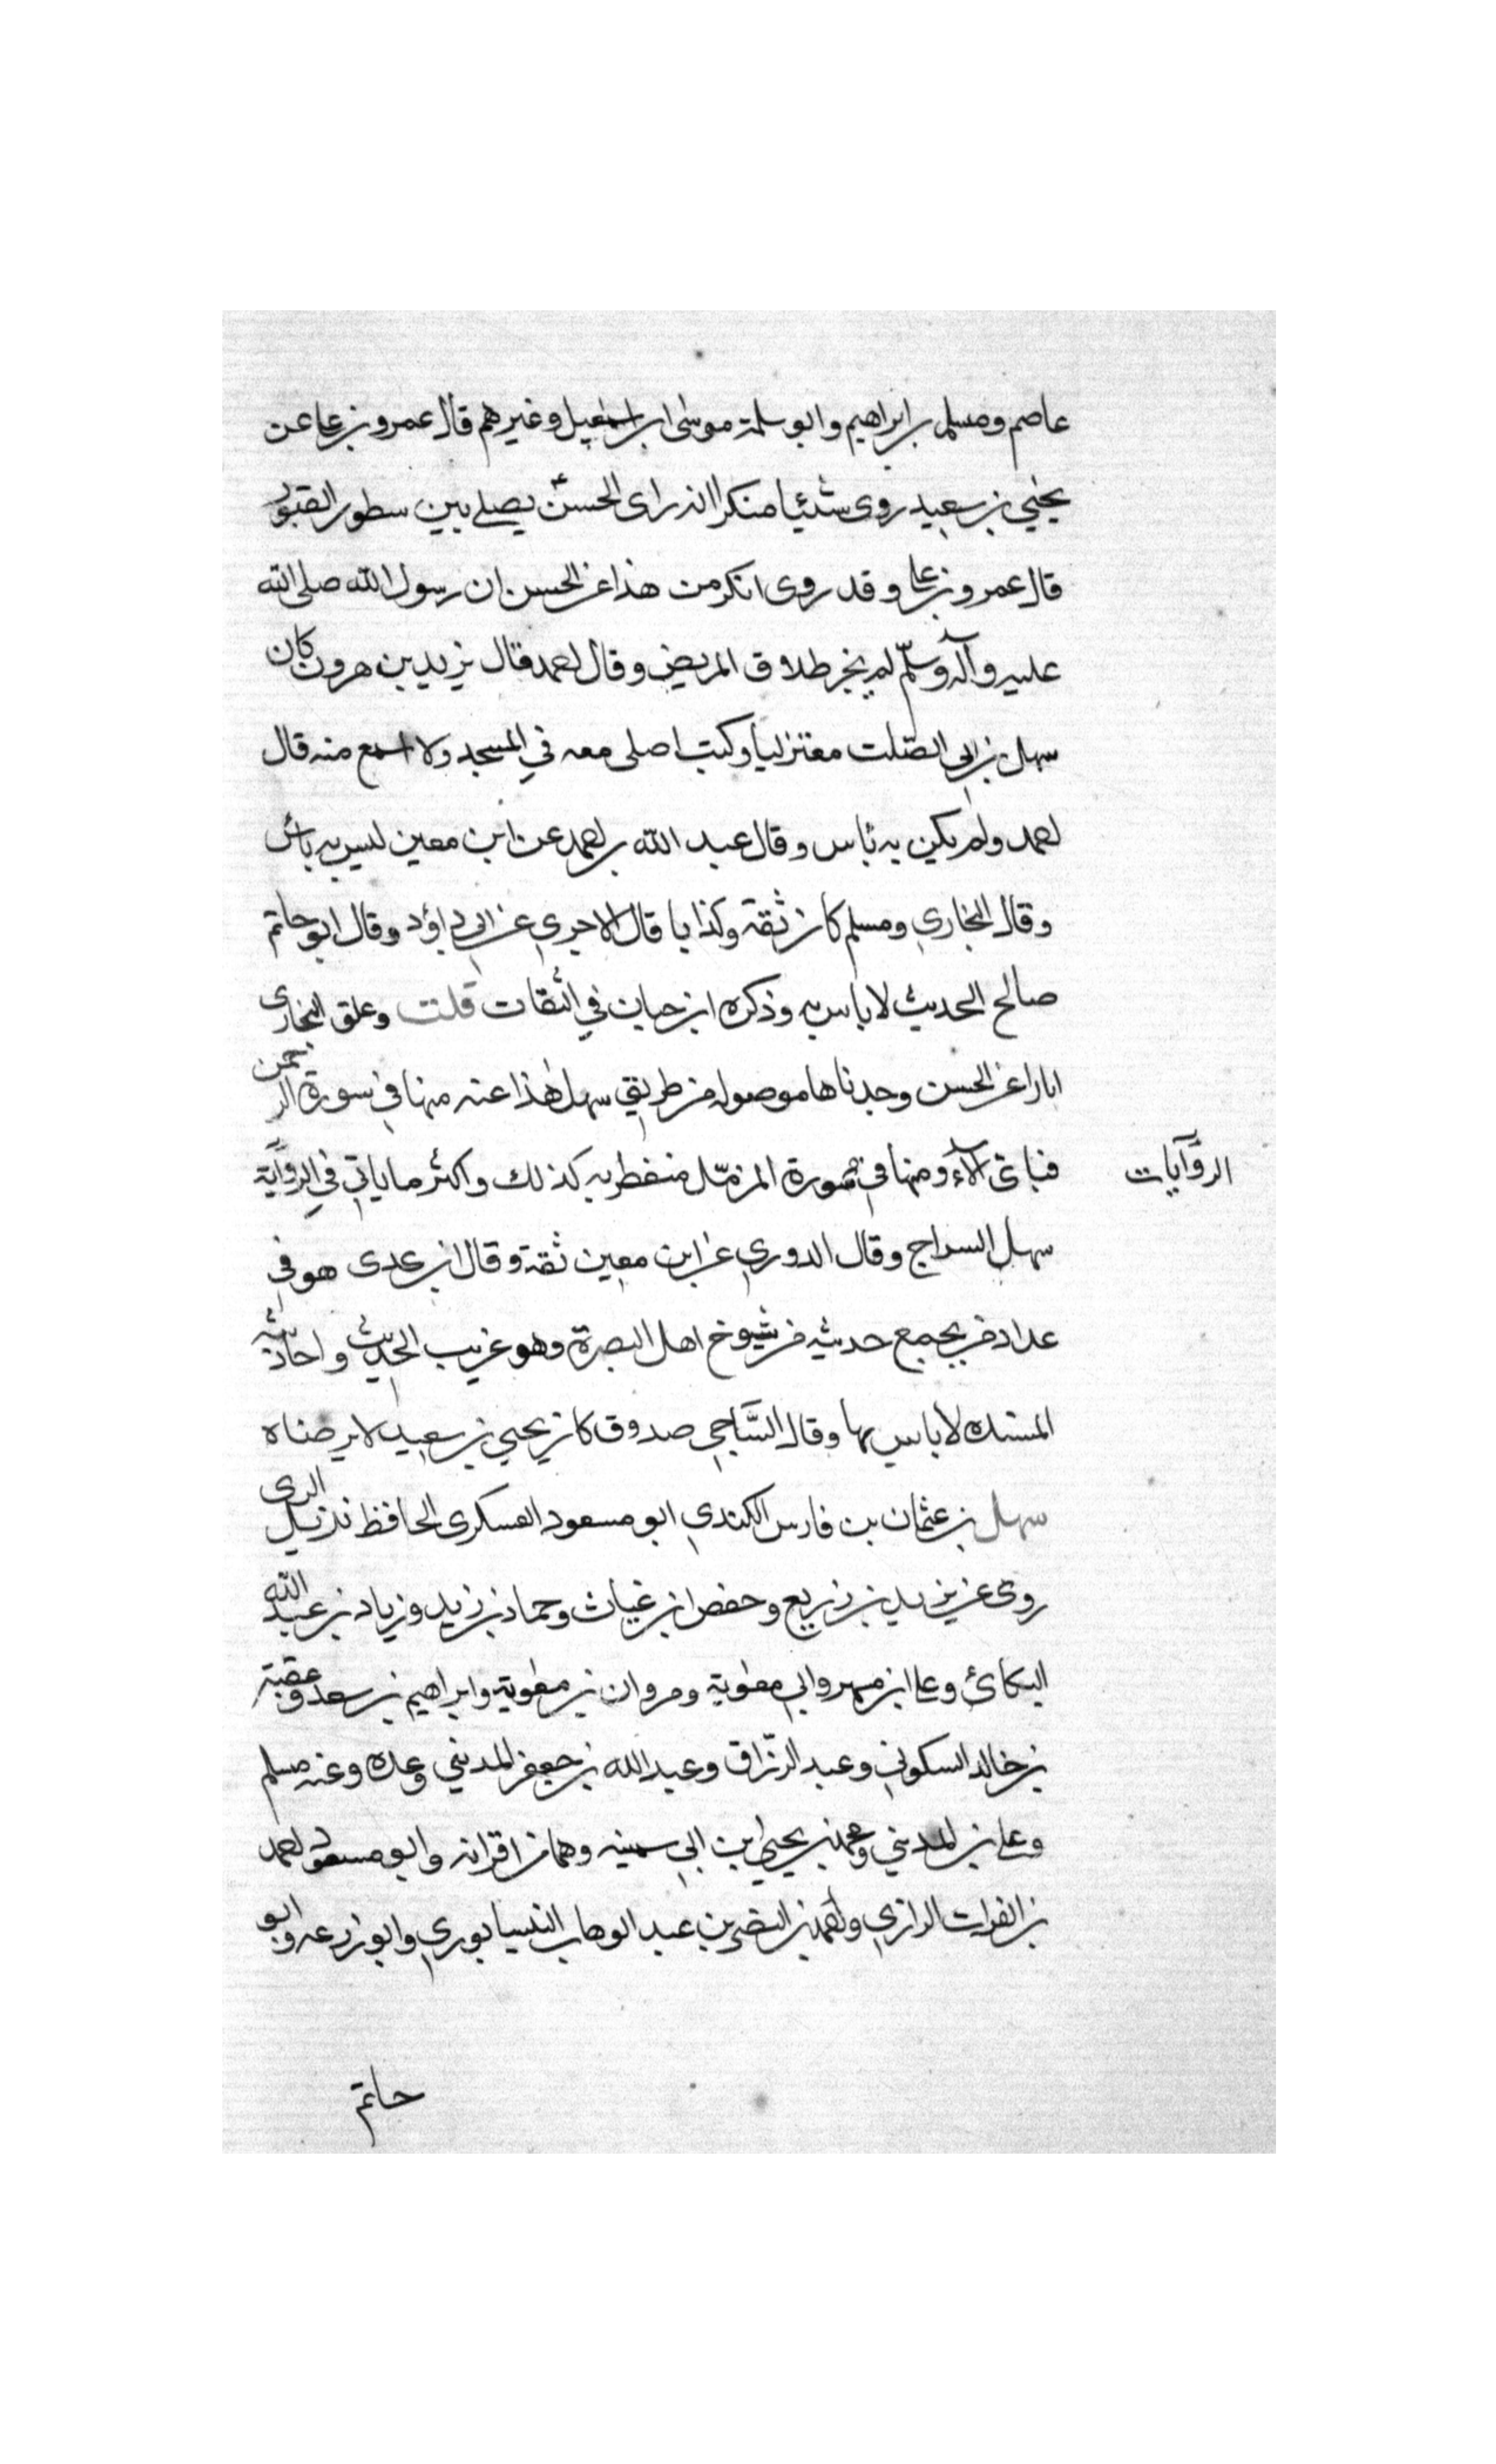 عاصم ومسلم بن ابراهيم وابو سلمة موسى ابن اسمعيل وغيرهم قال عمرو بن على عن
يحيي بن سعيد روى شيئا منكرا انه راى الحسن يصلے بين سطور القبور
قال عمرو بن على وقد روى انكر من هذا عن الحسن ان رسول الله صلى الله
عليه وآله وسلّم لم يجز طلاق المريض وقال احمد قال يزيد بن هرون كان
سهل بن ابي الصّلت معتزليا وكنت اصلى معه في المسجد ولا اسمع منه قال
احمد ولم يكن به باس وقال عبد الله بن احمد عن ابن معين ليس به باس
وقال البخاري ومسلم كان ثقة وكذا يا قال الاجري عن ابي داؤد وقال ابو حاتم
صالح الحديث لا باس به وذكره ابن حبان في الثقات قلت وعلق البخارى
اثارا عن الحسن وجدناها موصوله من طريق سهل هذا عنه منها في سورة الرحمن
فباى آلآء ومنها في سورة المزمّل منفطر به كذلك واكثر ما ياتي في الروّاية
الروّآيات
سهل السراج وقال الدوري عن ابن معين ثقة وقال ابن عدى هو في
عداد من يجمع حديثه من شيوخ اهل البصرة وهو غريب الحديث واحاديثه
المسنده لا باس بها وقال السّاجي صدوق كان يحيي بن سعيد لا يرضاه
سهل بن عثمان بن فارس الكندي ابو مسعود العسكرى الحافظ نزيل الرى
روى عن يزيد بن زريع وحفص ابن غياث وحماد بن زيد وزياد بن عبد الله
البكائي وعلى ابن مسهر وابي معوية ومروان بن معوية وابراهيم بن سعد وعقبة
بن خالد السكوني وعبد الرّزاق وعبد الله بن جعفر المديني وعده وعنه مسلم
وعلى بن المديني ومحمد بن يحيي ابن ابي سمينه وهما من اقرانه وابو مسعود احمد
بن الفرات الرازي واحمد بن النضر بن عبد الوهاب النيسابوري وابو زرعه وابو
حاتم